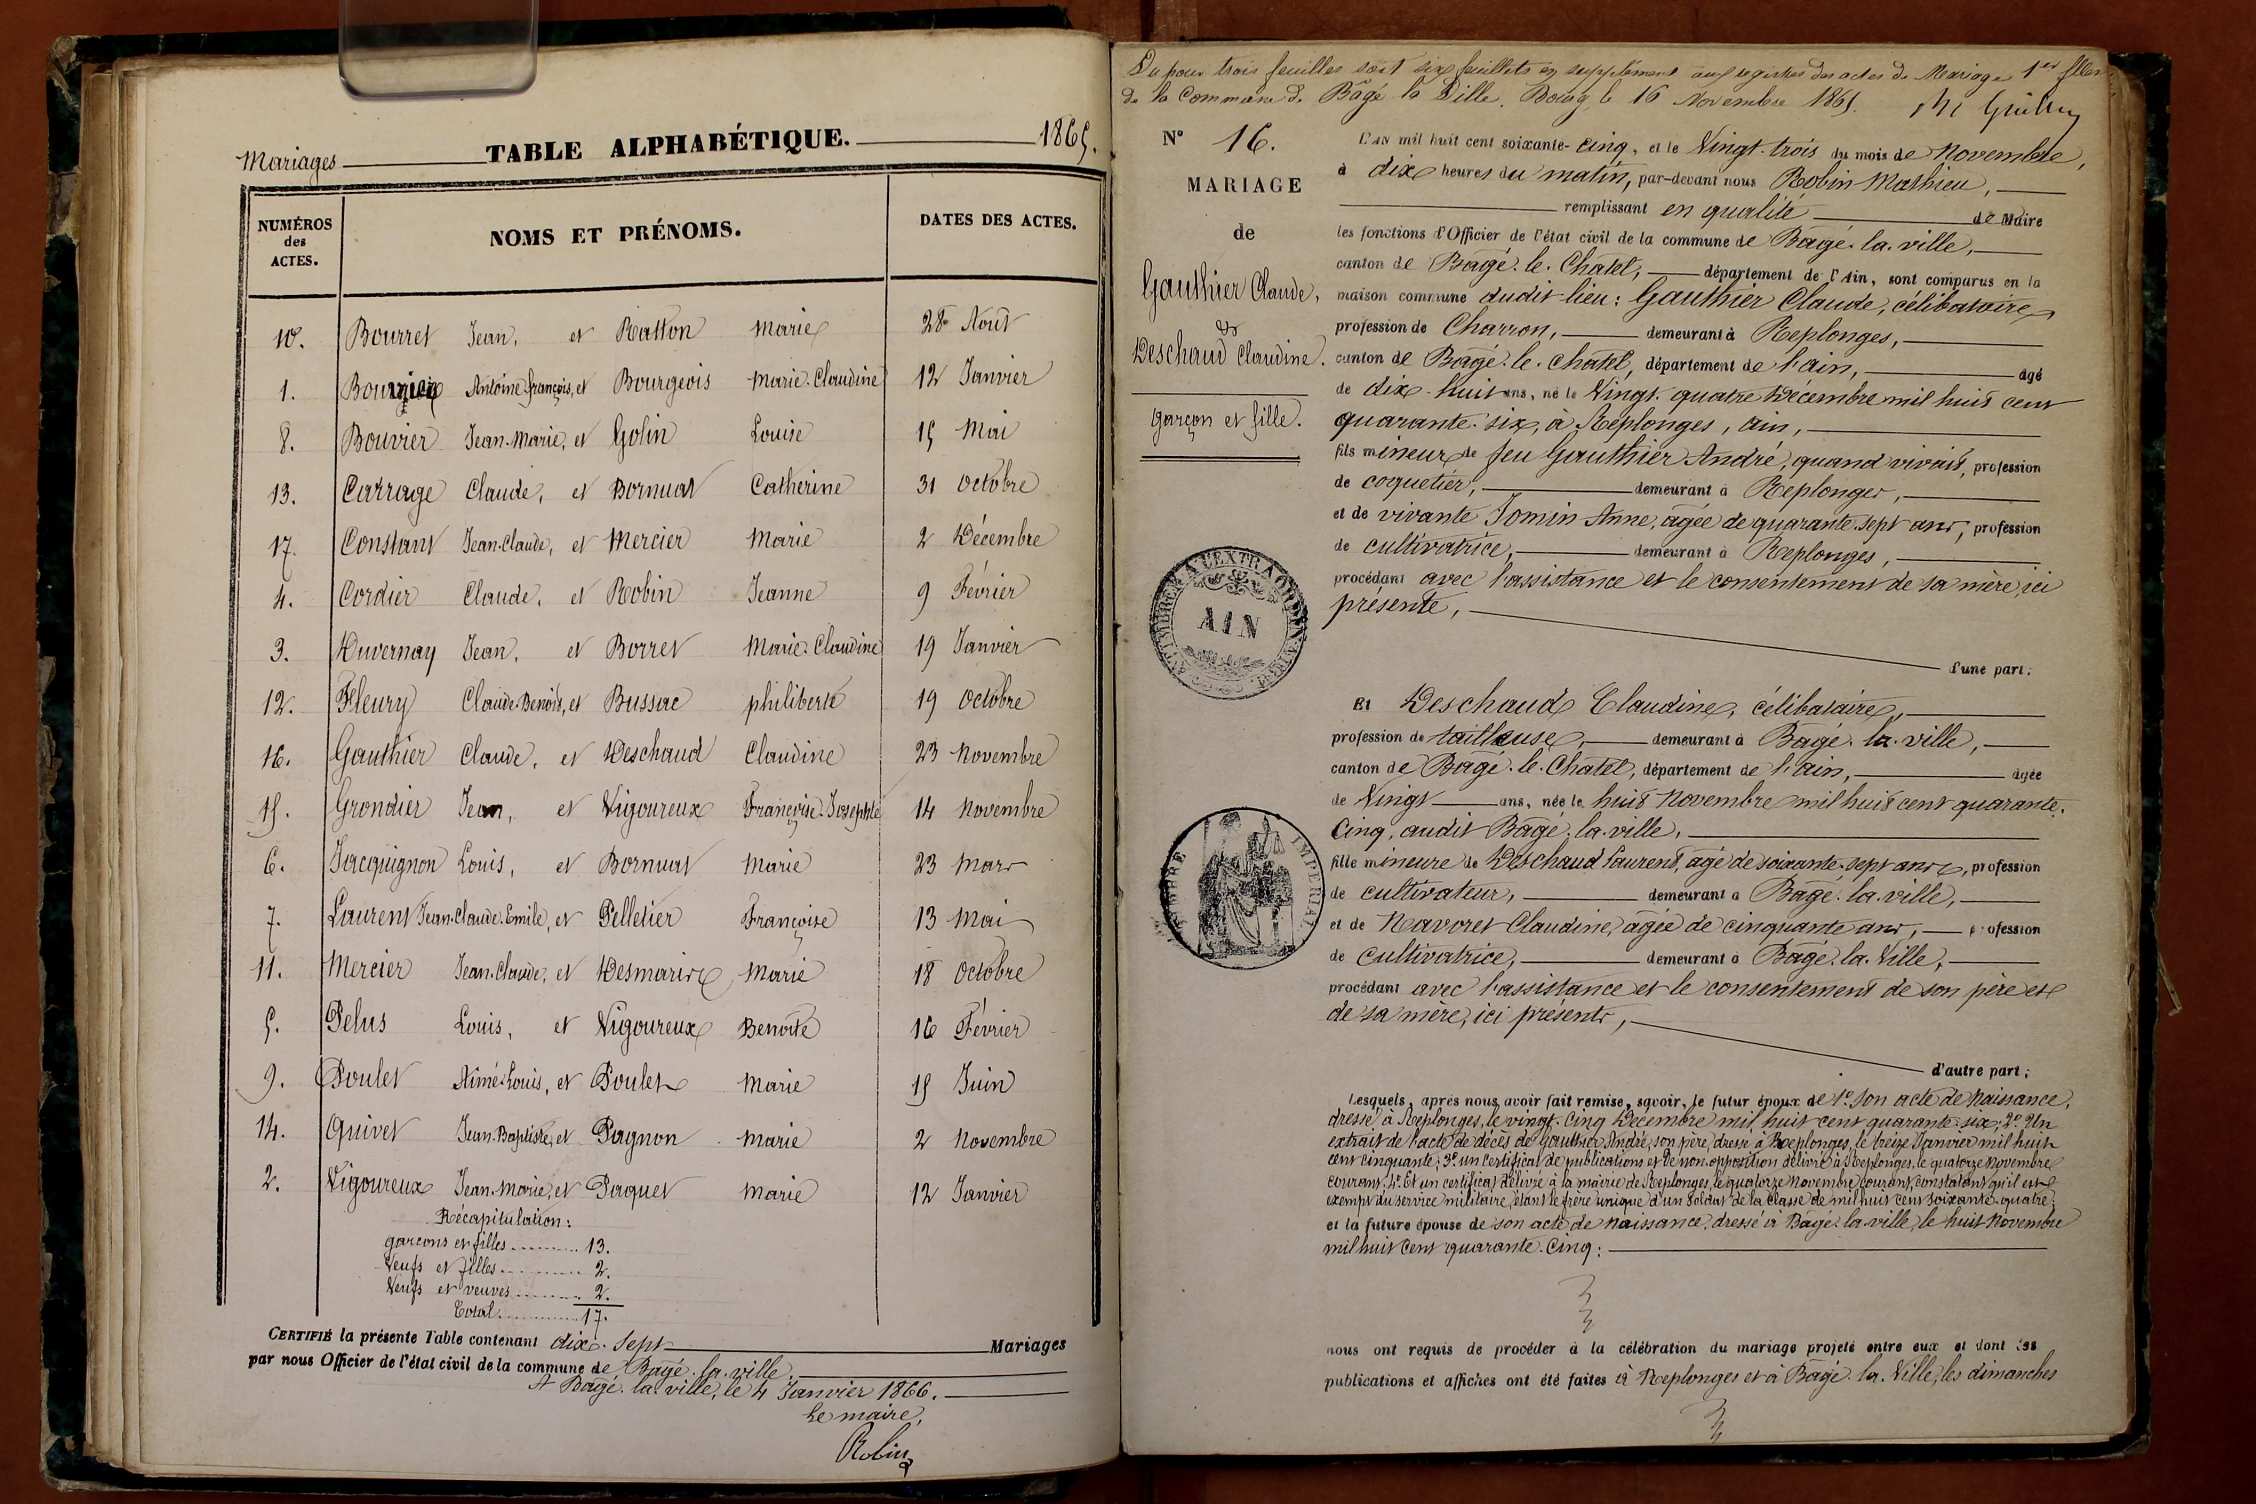 Mariages TABLE ALPHABÉTIQUE. 1865.
NUMÉROS des ACTES. NOMS ET PRÉNOMS. DATES DES ACTES.
10. Bourret Jean, et Ratton Marie 28 Août
1. Antoine françois, et Bourgeois Marie-Claudine 12 Janvier
8. Bouvier Jean-Marie, et Golin Louise 15 Mai
13. Carrage Claude, et Bornuat Catherine 31 Octobre
17. Constant Jean-Claude, et Mercier Marie 2 Décembre
4. Cordier Claude, et Robin Jeanne 9 Février
3. Duvernay Jean, et Borret Marie-Claudine 19 Janvier
12. Fleury Claude-Benoit, et Bussac philiberte 19 Octobre
16. Gauthier Claude, et Deschaud Claudine 23 Novembre
15. Grondier Jean, et Vigoureux Françoise-Josephte 14 Novembre
6. Jacquignon Louis, et Bornuat Marie 23 Mars
7. Laurent Jean-Claude-Emile, et Pelletier Françoise 13 Mai
11. Mercier Jean-Claude, et Desmaris Marie 18 Octobre
5. Pelus Louis, et Vigoureux Benoite 16 Février
9. Poulet Aimé-Louis, et Poulet Marie 15 Juin
14. Quivet Jean-Baptiste, et Pagnon Marie 2 Novembre
2. Vigoureux Jean-Marie, et Paquet Marie 12 Janvier
Récapitulation:
garçons et filles 13.
Veufs et filles 2.
Veufs et veuves 2.
Total 17.
CERTIFIÉ la présente Table contenant dix-sept Mariages
par nous Officier de l'état civil de la commune de Bâgé-la-ville.
A Bâgé-la-ville, le 4 Janvier 1866.
Le maire,
Robin
Vu pour trois feuilles soit six feuillets en supplément aux registres des actes de Mariage
de la Commune de Bâgé la Ville. Bourg le 16 Novembre 1865.
N° 16.
MARIAGE
de
Gauthier Claude,
et
Deschaud Claudine.
garçon et fille.
TIMBRE A L'EXTRAORDINAIRE
AIN
TIMBRE IMPERIAL
L'AN mil huit cent soixante-cinq, et le Vingt-trois du mois de Novembre,
à dix heures du matin, par-devant nous Robin Mathieu,
remplissant en qualité de Maire
les fonctions d'Officier de l'état civil de la commune de Bâgé-la-ville,
canton de Bâgé-le-Châtel, département de l'Ain, sont comparus en la
maison commune dudit lieu: Gauthier Claude, célibataire,
profession de Charron, demeurant à Replonges,
canton de Bâgé-le-châtel, département de l'ain, âgé
de dix-huit ans, né le Vingt-quatre Décembre mil huit cent
quarante-six, à Replonges, ain,
fils mineur de feu Gauthier André, quand vivait, profession
de coquetier, demeurant à Replonges,
et de vivante Jomin Anne, âgée de quarante-sept ans, profession
de cultivatrice, demeurant à Replonges,
procédant avec l'assistance et le consentement de sa mère, ici
présente,
d'une part;
Et Deschaud Claudine, célibataire,
profession de tailleuse, demeurant à Bâgé-la-ville,
canton de Bâgé-le-Châtel, département de l'ain, âgée
de Vingt ans, née le huit Novembre mil huit cent quarante-
Cinq, audit Bâgé-la-ville,
fille mineure de Deschaud Laurent, âgé de soixante-sept ans, profession
de cultivateur, demeurant à Bâgé-la-ville,
et de Navoret Claudine, âgée de cinquante ans, profession
de cultivatrice, demeurant à Bâgé-la-Ville,
procédant avec l'assistance et le consentement de son père et
de sa mère, ici présents,
d'autre part;
Lesquels, après nous avoir fait remise, savoir, le futur époux de 1° son acte de naissance,
dressé à Replonges, le vingt-cinq Décembre mil huit cent quarante-six; 2° Un
extrait de l'acte de décès de Gauthier André, son père, dressé à Replonges, le treize Janvier mil huit
cent cinquante; 3° un certificat de publications et de non-opposition délivré à Replonges, le quatorze Novembre
courant; 4° Et un certificat délivré à la mairie de Replonges, le quatorze Novembre courant, constatant qu'il est
exempt du service militaire, étant le frère unique d'un soldat de la Classe de mil huit cent soixante-quatre;
et la future épouse de son acte de naissance, dressé à Bâgé-la-ville, le huit Novembre
mil huit cent quarante-Cinq:
nous ont requis de procéder à la célébration du mariage projeté entre eux et dont les
publications et affiches ont été faites à Replonges et à Bâgé-la-Ville, les dimanches